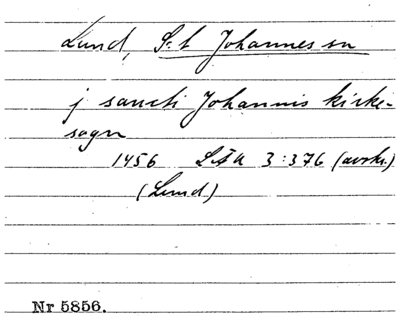 Lund, S:t Johannes sn
j sancti Johannis kirke-
sogn
1456 LÄU 3:376 (avskr.)
(Lund)
Nr 5856.